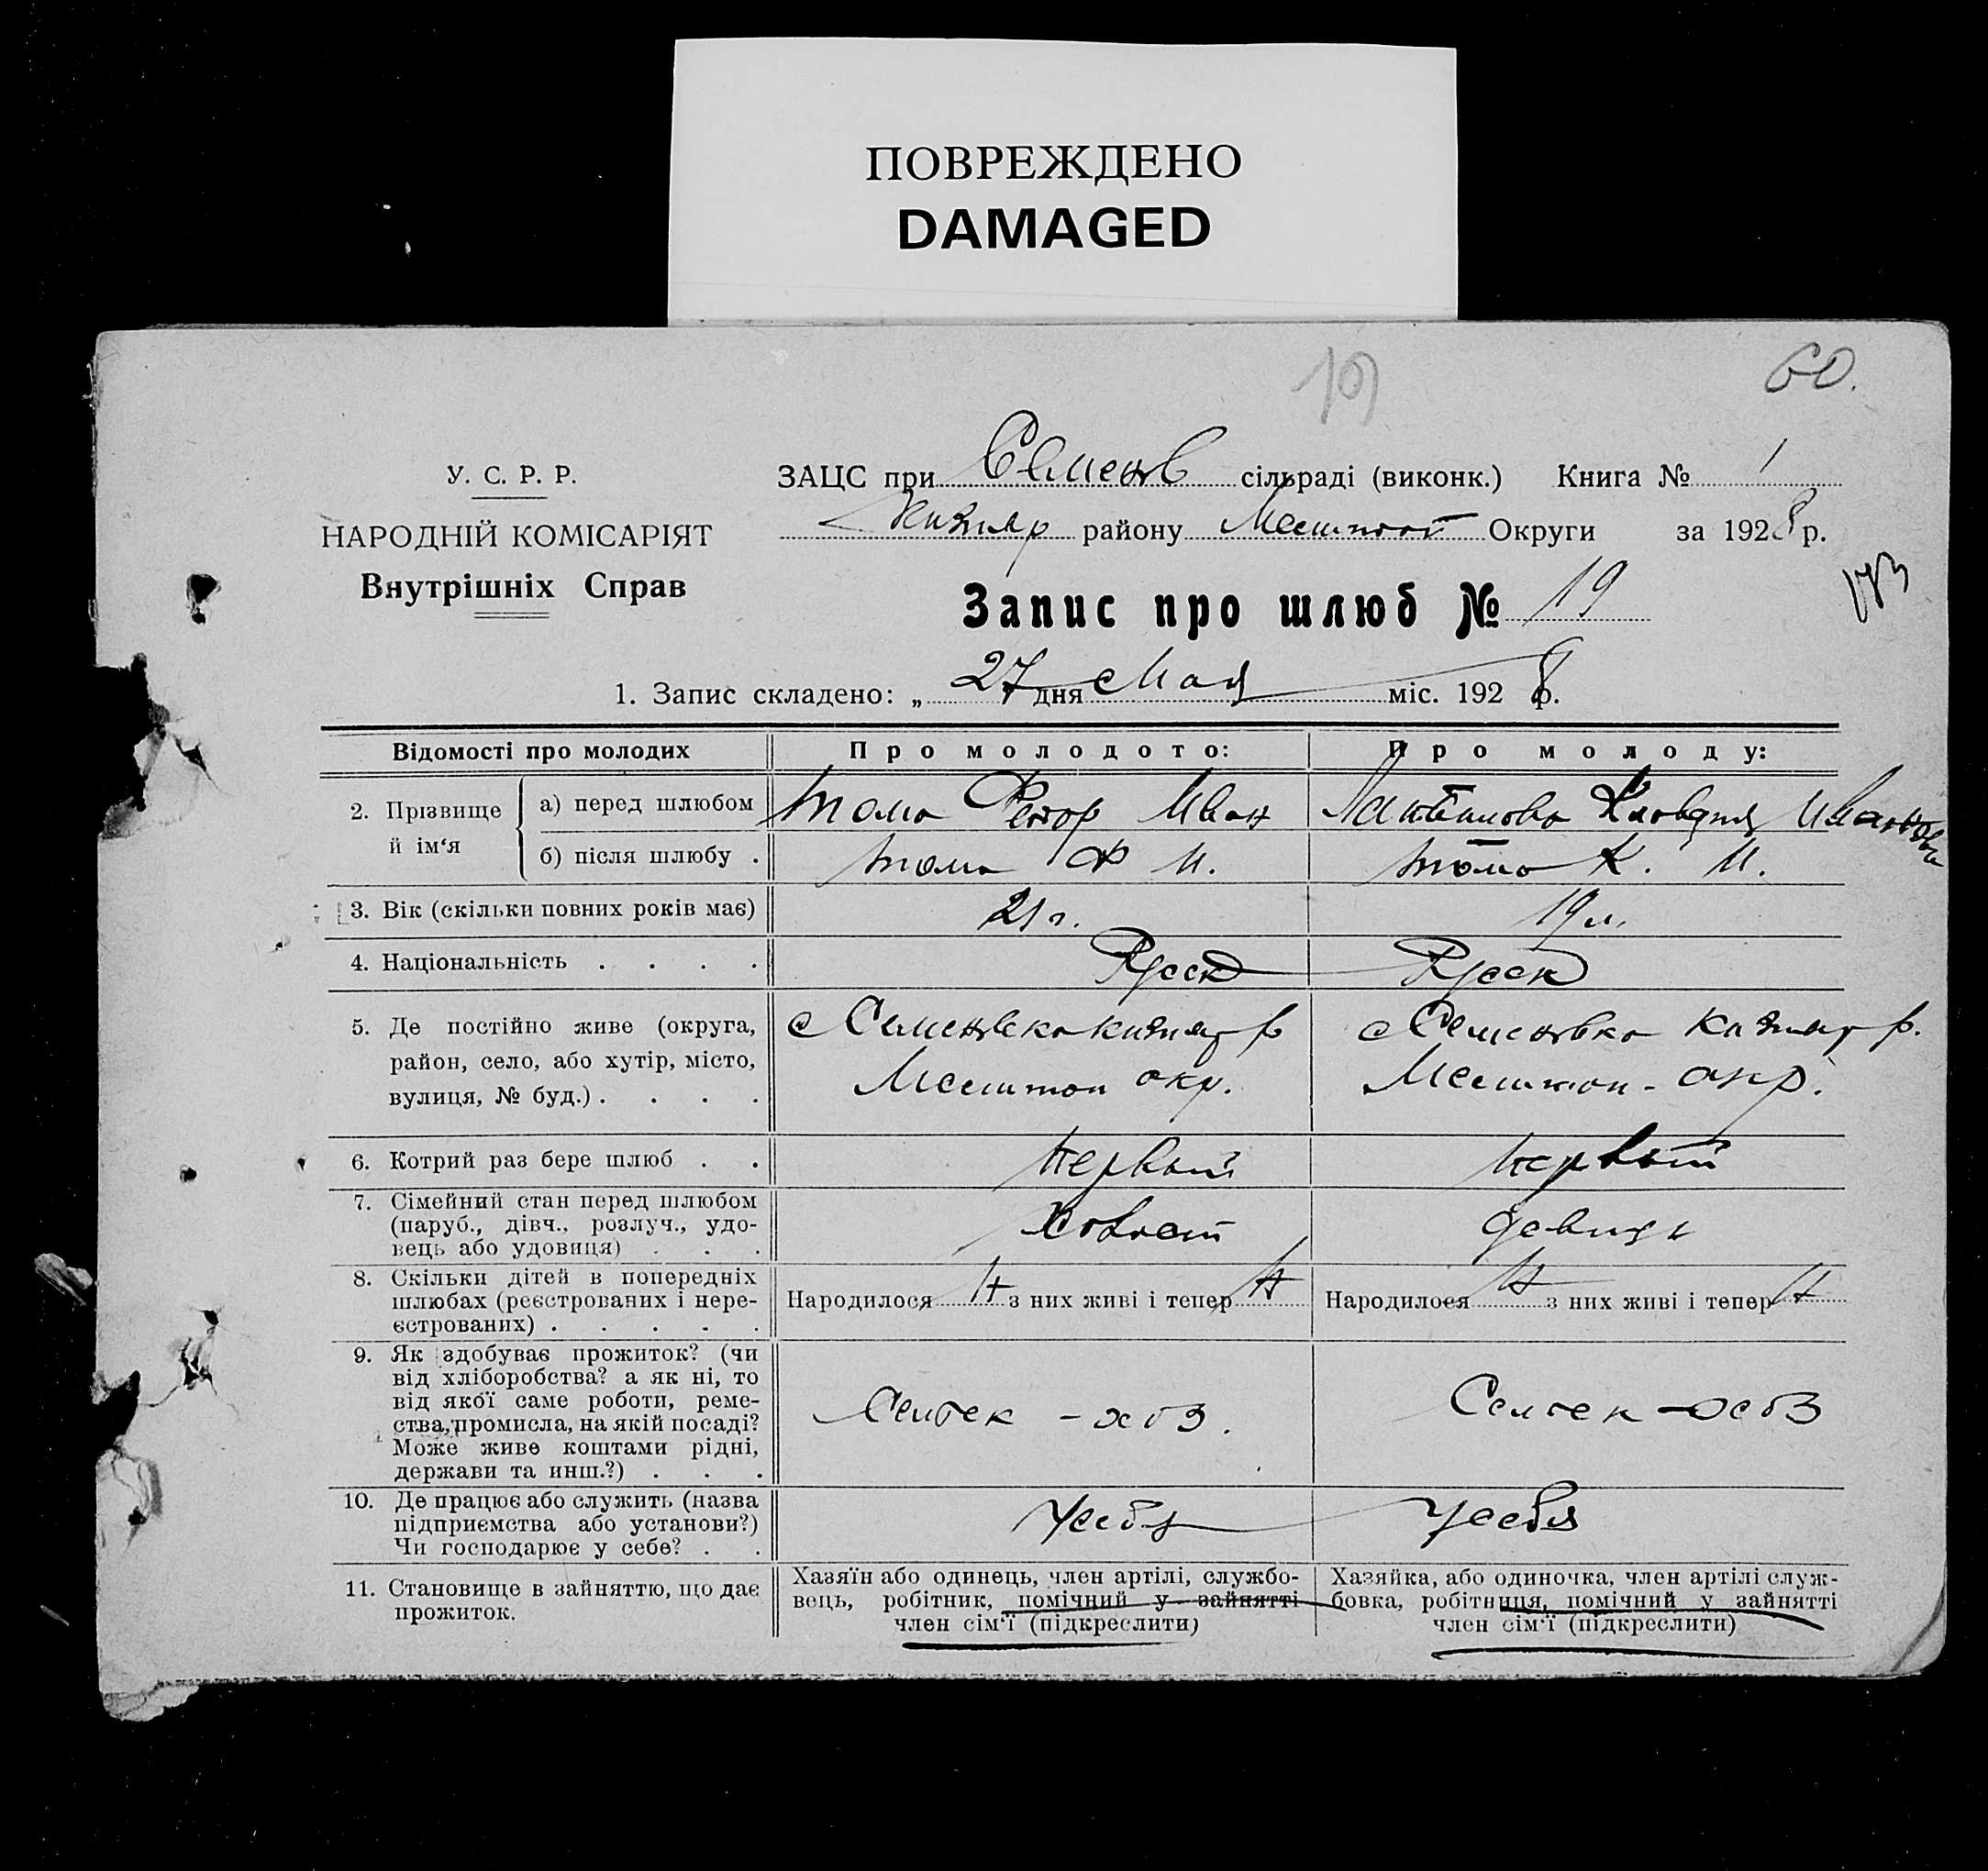 ПОВРЕЖДЕНО
DAMAGED
19
60.
У. С. Р. Р.
НАРОДНІЙ КОМІСАРІЯТ
Внутрішніх Справ
ЗАЦС при Семенов сільраді (виконк.) Книга № 1
району Округи за 1928 р.
173
Запис про шлюб № 19
1. Запис складено: „ 27 дня Мая міс. 1928 р.
Відомості про молодих
Про молодого:
Про молоду:
2. Прізвище й ім‘я
а) перед шлюбом
Тома Федор Иван
Клавдия Ивановна
б) після шлюбу .
Тома Ф И.
Тома К. И.
3. Вік (скільки повних років має)
21 г.
19 л.
4. Національність . . . .
Русск
Русск
5. Де постійно живе (округа,
район, село, або хутір, місто,
вулиця, № буд.) . . . .
с Семеновка р
окр.
с Семеновка р.
окр.
6. Котрий раз бере шлюб . .
первый
первый
7. Сімейний стан перед шлюбом
(паруб., дівч., розлуч., удо-
вець або удовиця) . . .
Холост
девица
8. Скільки дітей в попередніх
шлюбах (реєстрованих і нере-
єстрованих) . . . . .
Народилося Н з них живі і тепер Н
Народилося Н з них живі і тепер Н
9. Як здобуває прожиток? (чи
від хліборобства? а як ні, то
від якої саме роботи, реме-
ства, промисла, на якій посаді?
Може живе коштами рідні,
держави та инш.?) . . .
10. Де працює або служить (назва
підприємства або установи?)
Чи господарює у себе? . .
У себя
У себя
11. Становище в зайняттю, що дає
прожиток.
Хазяїн або одинець, член артілі, службо-
вець, робітник, помічний у зайнятті
член сім‘ї (підкреслити)
Хазяйка, або одиночка, член артілі служ-
бовка, робітниця, помічний у зайнятті
член сім‘ї (підкреслити)